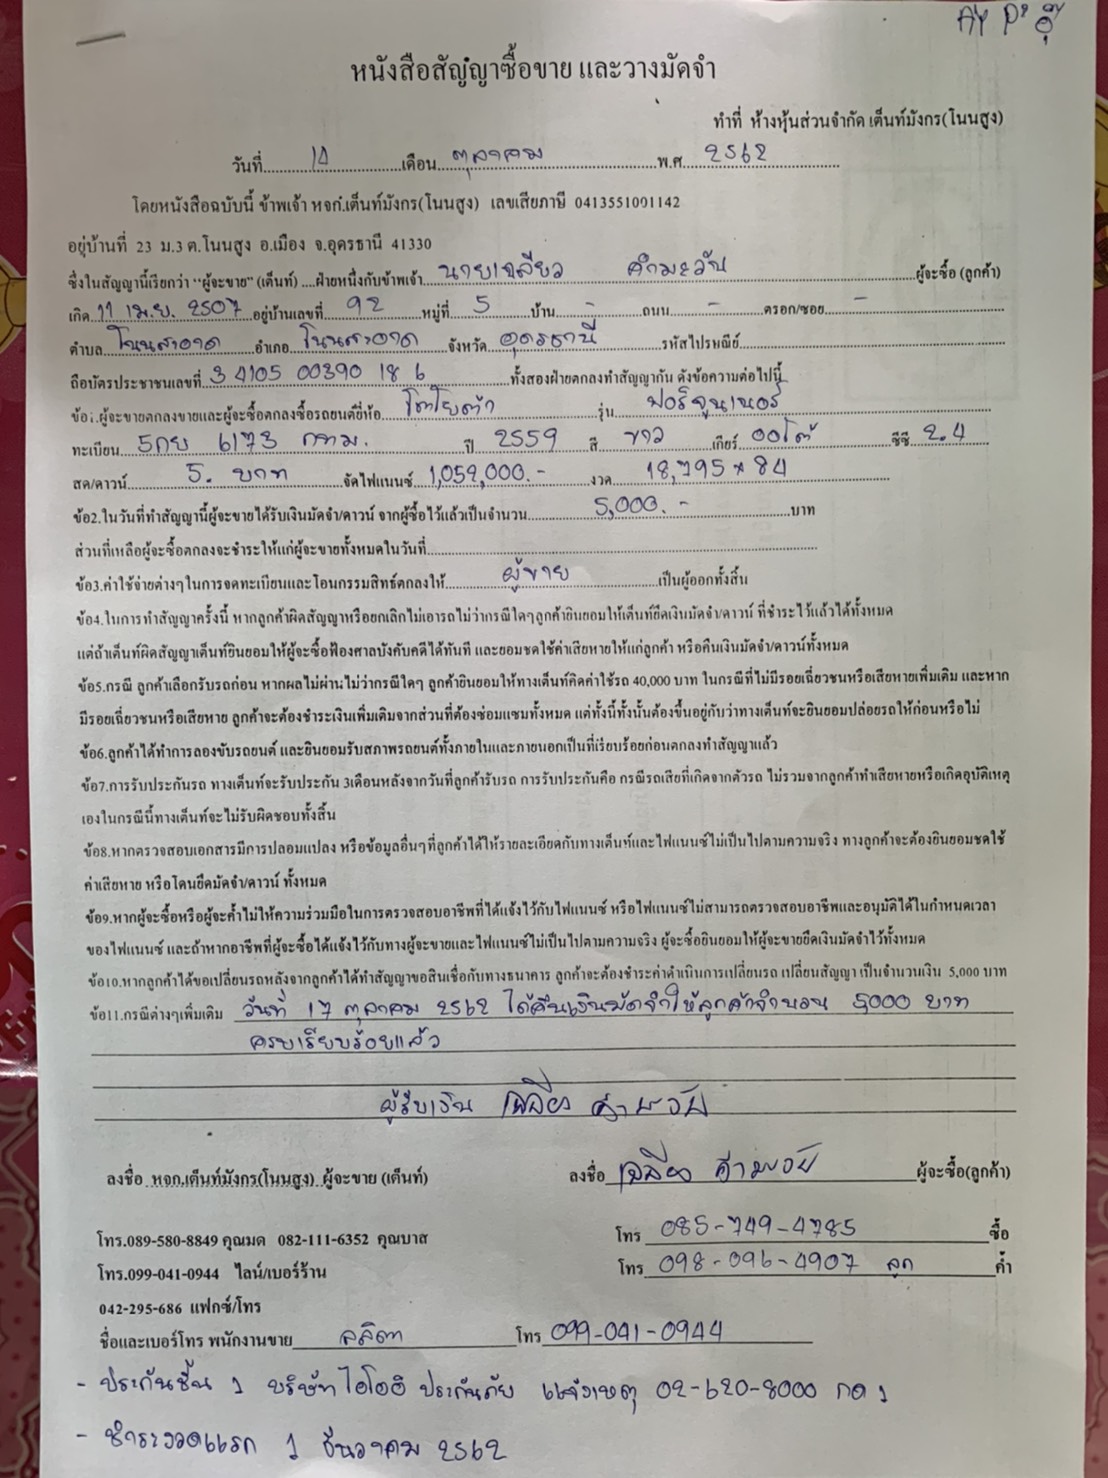 AY P' อุ๊
หนังสือสัญญาซื้อขาย และวางมัดจำ
ทำที่ ห้างหุ้นส่วนจำกัด เต็นท์มังกร(โนนสูง)
วันที่ 14 เดือน ตุลาคม พ.ศ 2562
โดยหนังสือฉบับนี้ ข้าพเจ้า หจก.เต็นท์มังกร(โนนสูง) เลขเสียภาษี 0413551001142
อยู่บ้านที่ 23 ม.3 ต.โนนสูง อ.เมือง จ.อุดรธานี 41330
ซึ่งในสัญญานี้เรียกว่า "ผู้จะขาย" (เต็นท์) ....ฝ่ายหนึ่งกับข้าพเจ้า นายเฉลียว คำมะวัน ผู้จะซื้อ (ลูกค้า)
เกิด 11 เม.ย. 2507 อยู่บ้านเลขที่ 92 หมู่ที่ 5 บ้าน - ถนน - ตรอก/ซอย -
ตำบล โนนสะอาด อำเภอ โนนสะอาด จังหวัด อุดรธานี รหัสไปรษณีย์
ถือบัตรประชาชนเลขที่ 3 4105 00390 18 6 ทั้งสองฝ่ายตกลงทำสัญญากัน ดังข้อความต่อไปนี้
ข้อ1.ผู้จะขายตกลงขายและผู้จะซื้อตกลงซื้อรถยนต์ยี่ห้อ โตโยต้า รุ่น ฟอร์จูนเนอร์
ทะเบียน 5กย 6173 กทม. ปี 2559 สี ขาว เกียร์ ออโต้ ซีซี 2.4
สด/ดาวน์ 5. บาท จัดไฟแนนซ์ 1,052,000.- งวด 18,795 x 84
ข้อ2.ในวันที่ทำสัญญานี้ผู้จะขายได้รับเงินมัดจำ/ดาวน์ จากผู้ซื้อไว้แล้วเป็นจำนวน 5,000.- บาท
ส่วนที่เหลือผู้จะซื้อตกลงจะชำระให้แก่ผู้จะขายทั้งหมดในวันที่
ข้อ3.ค่าใช้จ่ายต่างๆในการจดทะเบียนและโอนกรรมสิทธ์ตกลงให้ ผู้ขาย เป็นผู้ออกทั้งสิ้น
ข้อ4.ในการทำสัญญาครั้งนี้ หากลูกค้าผิดสัญญาหรือยกเลิกไม่เอารถไม่ว่ากรณีใดๆลูกค้ายินยอมให้เต็นท์ยึดเงินมัดจำ/ดาวน์ ที่ชำระไว้แล้วได้ทั้งหมด
แต่ถ้าเต็นท์ผิดสัญญาเต็นท์ยินยอมให้ผู้จะซื้อฟ้องศาลบังคับคดีได้ทันที และยอมชดใช้ค่าเสียหายให้แก่ลูกค้า หรือคืนเงินมัดจำ/ดาวน์ทั้งหมด
ข้อ5.กรณี ลูกค้าเลือกรับรถก่อน หากผลไม่ผ่านไม่ว่ากรณีใดๆ ลูกค้ายินยอมให้ทางเต็นท์คิดค่าใช้รถ 40,000 บาท ในกรณีที่ไม่มีรอยเฉี่ยวชนหรือเสียหายเพิ่มเติม และหาก
มีรอยเฉี่ยวชนหรือเสียหาย ลูกค้าจะต้องชำระเงินเพิ่มเติมจากส่วนที่ต้องซ่อมแซมทั้งหมด แต่ทั้งนี้ทั้งนั้นต้องขึ้นอยู่กับว่าทางเต็นท์จะยินยอมปล่อยรถให้ก่อนหรือไม่
ข้อ6.ลูกค้าได้ทำการลองขับรถยนต์ และยินยอมรับสภาพรถยนต์ทั้งภายในและภายนอกเป็นที่เรียบร้อยก่อนตกลงทำสัญญาแล้ว
ข้อ7.การรับประกันรถ ทางเต็นท์จะรับประกัน 3เดือนหลังจากวันที่ลูกค้ารับรถ การรับประกันคือ กรณีรถเสียที่เกิดจากตัวรถ ไม่รวมจากลูกค้าทำเสียหายหรือเกิดอุบัติเหตุ
เองในกรณีนี้ทางเต็นท์จะไม่รับผิดชอบทั้งสิ้น
ข้อ8.หากตรวจสอบเอกสารมีการปลอมแปลง หรือข้อมูลอื่นๆที่ลูกค้าได้ให้รายละเอียดกับทางเต็นท์และไฟแนนซ์ไม่เป็นไปตามความจริง ทางลูกค้าจะต้องยินยอมชดใช้
ค่าเสียหาย หรือโดนยึดมัดจำ/ดาวน์ ทั้งหมด
ข้อ9.หากผู้จะซื้อหรือผู้จะค้ำไม่ให้ความร่วมมือในการตรวจสอบอาชีพที่ได้แจ้งไว้กับไฟแนนซ์ หรือไฟแนนซ์ไม่สามารถตรวจสอบอาชีพและอนุมัติได้ในกำหนดเวลา
ของไฟแนนซ์ และถ้าหากอาชีพที่ผู้จะซื้อได้แจ้งไว้กับทางผู้จะขายและไฟแนนซ์ไม่เป็นไปตามความจริง ผู้จะซื้อยินยอมให้ผู้จะขายยึดเงินมัดจำไว้ทั้งหมด
ข้อ10.หากลูกค้าได้ขอเปลี่ยนรถหลังจากลูกค้าได้ทำสัญญาขอสินเชื่อกับทางธนาคาร ลูกค้าจะต้องชำระค่าดำเนินการเปลี่ยนรถ เปลี่ยนสัญญา เป็นจำนวนเงิน 5,000 บาท
ข้อ11.กรณีต่างๆเพิ่มเติม วันที่ 17 ตุลาคม 2562 ได้คืนเงินมัดจำให้ลูกค้าจำนวน 5000 บาท
ครบเรียบร้อยแล้ว
ผู้รับเงิน เฉลียว คำมะวัน
ลงชื่อ หจก.เต็นท์มังกร(โนนสูง) ผู้จะขาย (เต็นท์) ลงชื่อ เฉลียว คำมะวัน ผู้จะซื้อ(ลูกค้า)
โทร.089-580-8849 คุณมด 082-111-6352 คุณบาส โทร 085-749-4785 ซื้อ
โทร.099-041-0944 ไลน์/เบอร์ร้าน โทร 098-096-4907 ลูก ค้ำ
042-295-686 แฟกซ์/โทร
ชื่อและเบอร์โทร พนักงานขาย ลลิตา โทร 099-041-0944
- ประกันชั้น 1 บริษัท ไอโออิ ประกันภัย แจ้งเหตุ 02-620-8000 กด 1
- ชำระงวดแรก 1 ธันวาคม 2562